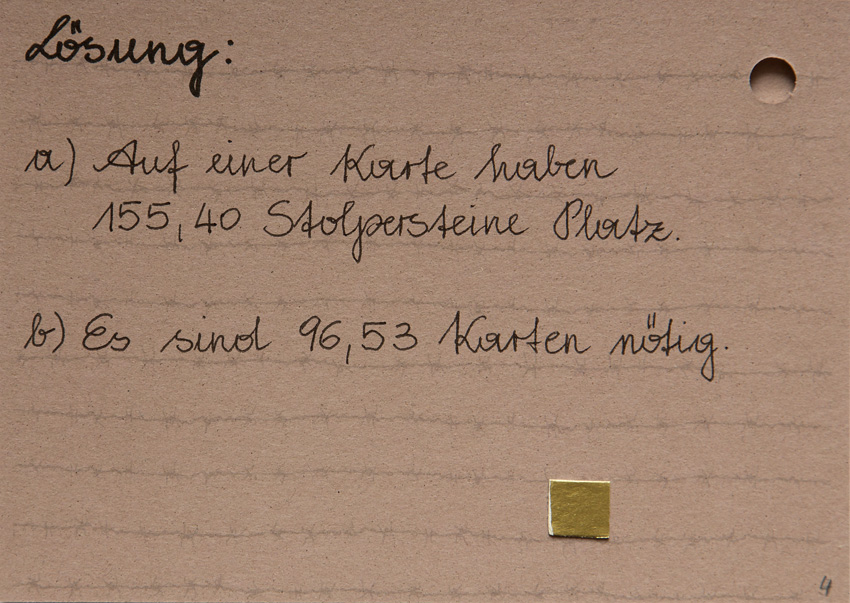 Lösung:
a) Auf einer Karte haben
155,40 Stolpersteine Platz.
b) Es sind 96,53 Karten nötig.
4